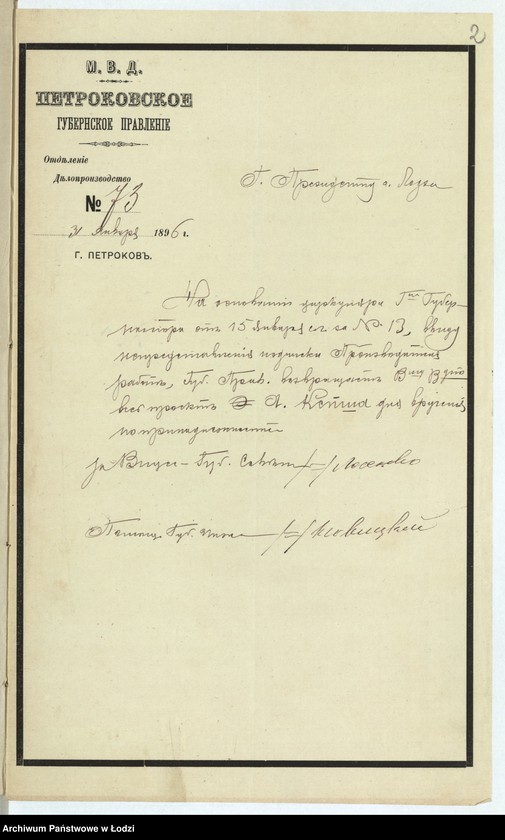 2
М. В. Д.
ПЕТРОКОВСКОЕ
ГУБЕРНСКОЕ ПРАВЛЕНІЕ
Отдѣленіе
Дѣлопроизводство
№ 73
31 Января 1896 г.
Г. ПЕТРОКОВЪ.
Г. Президенту г. Лодзи
На основаніи циркуляра Г. Губер-
натора отъ 15 Января с.г. за № 13, ввиду
непредставленія подписки Производителя
работъ, Губ. Правл. возвращаетъ
проектъ А. для врученія
по принадлежности
за Вице-Губ. Совѣтн.
Губ.
Archiwum Państwowe w Łodzi